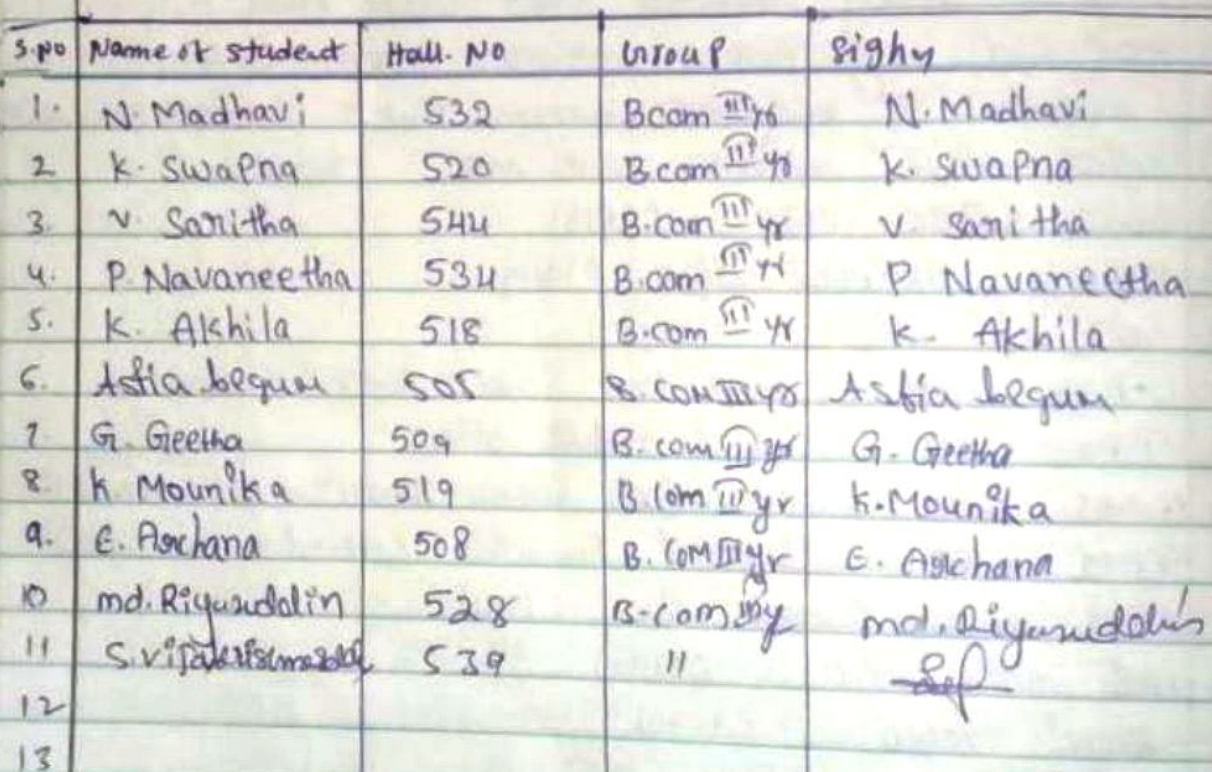 S.no Name of student Hall. No Group Sighy
1. N. Madhavi 532 Bcom III yr N. Madhavi
2 K. Swapna 520 B.com III yr K. Swapna
3. V. Saritha 544 B.com III yr V Saritha
4. P. Navaneetha 534 B.com III yr P Navaneetha
5. K. Akhila 518 B.com III yr K. Akhila
6. Asfia begum 505 B. com III yr Asfia begum
7 G. Geetha 509 B. com III yr G. Geetha
8 K Mounika 519 B. Com III yr K. Mounika
9. E. Archana 508 B. Com III yr E. Archana
10 md. Riyazuddin 528 B-com md. Riyazuddin
11 539 11
12
13